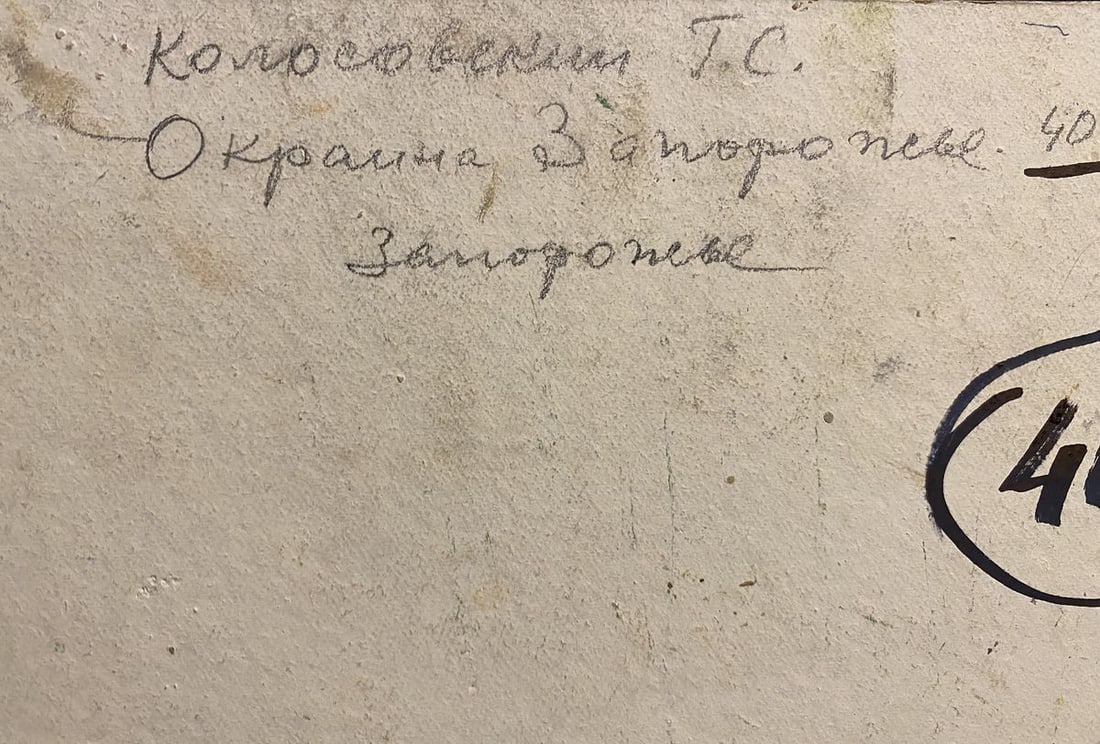 Колосовский Г.С.
Окраина Запорожье. 40
Запорожье